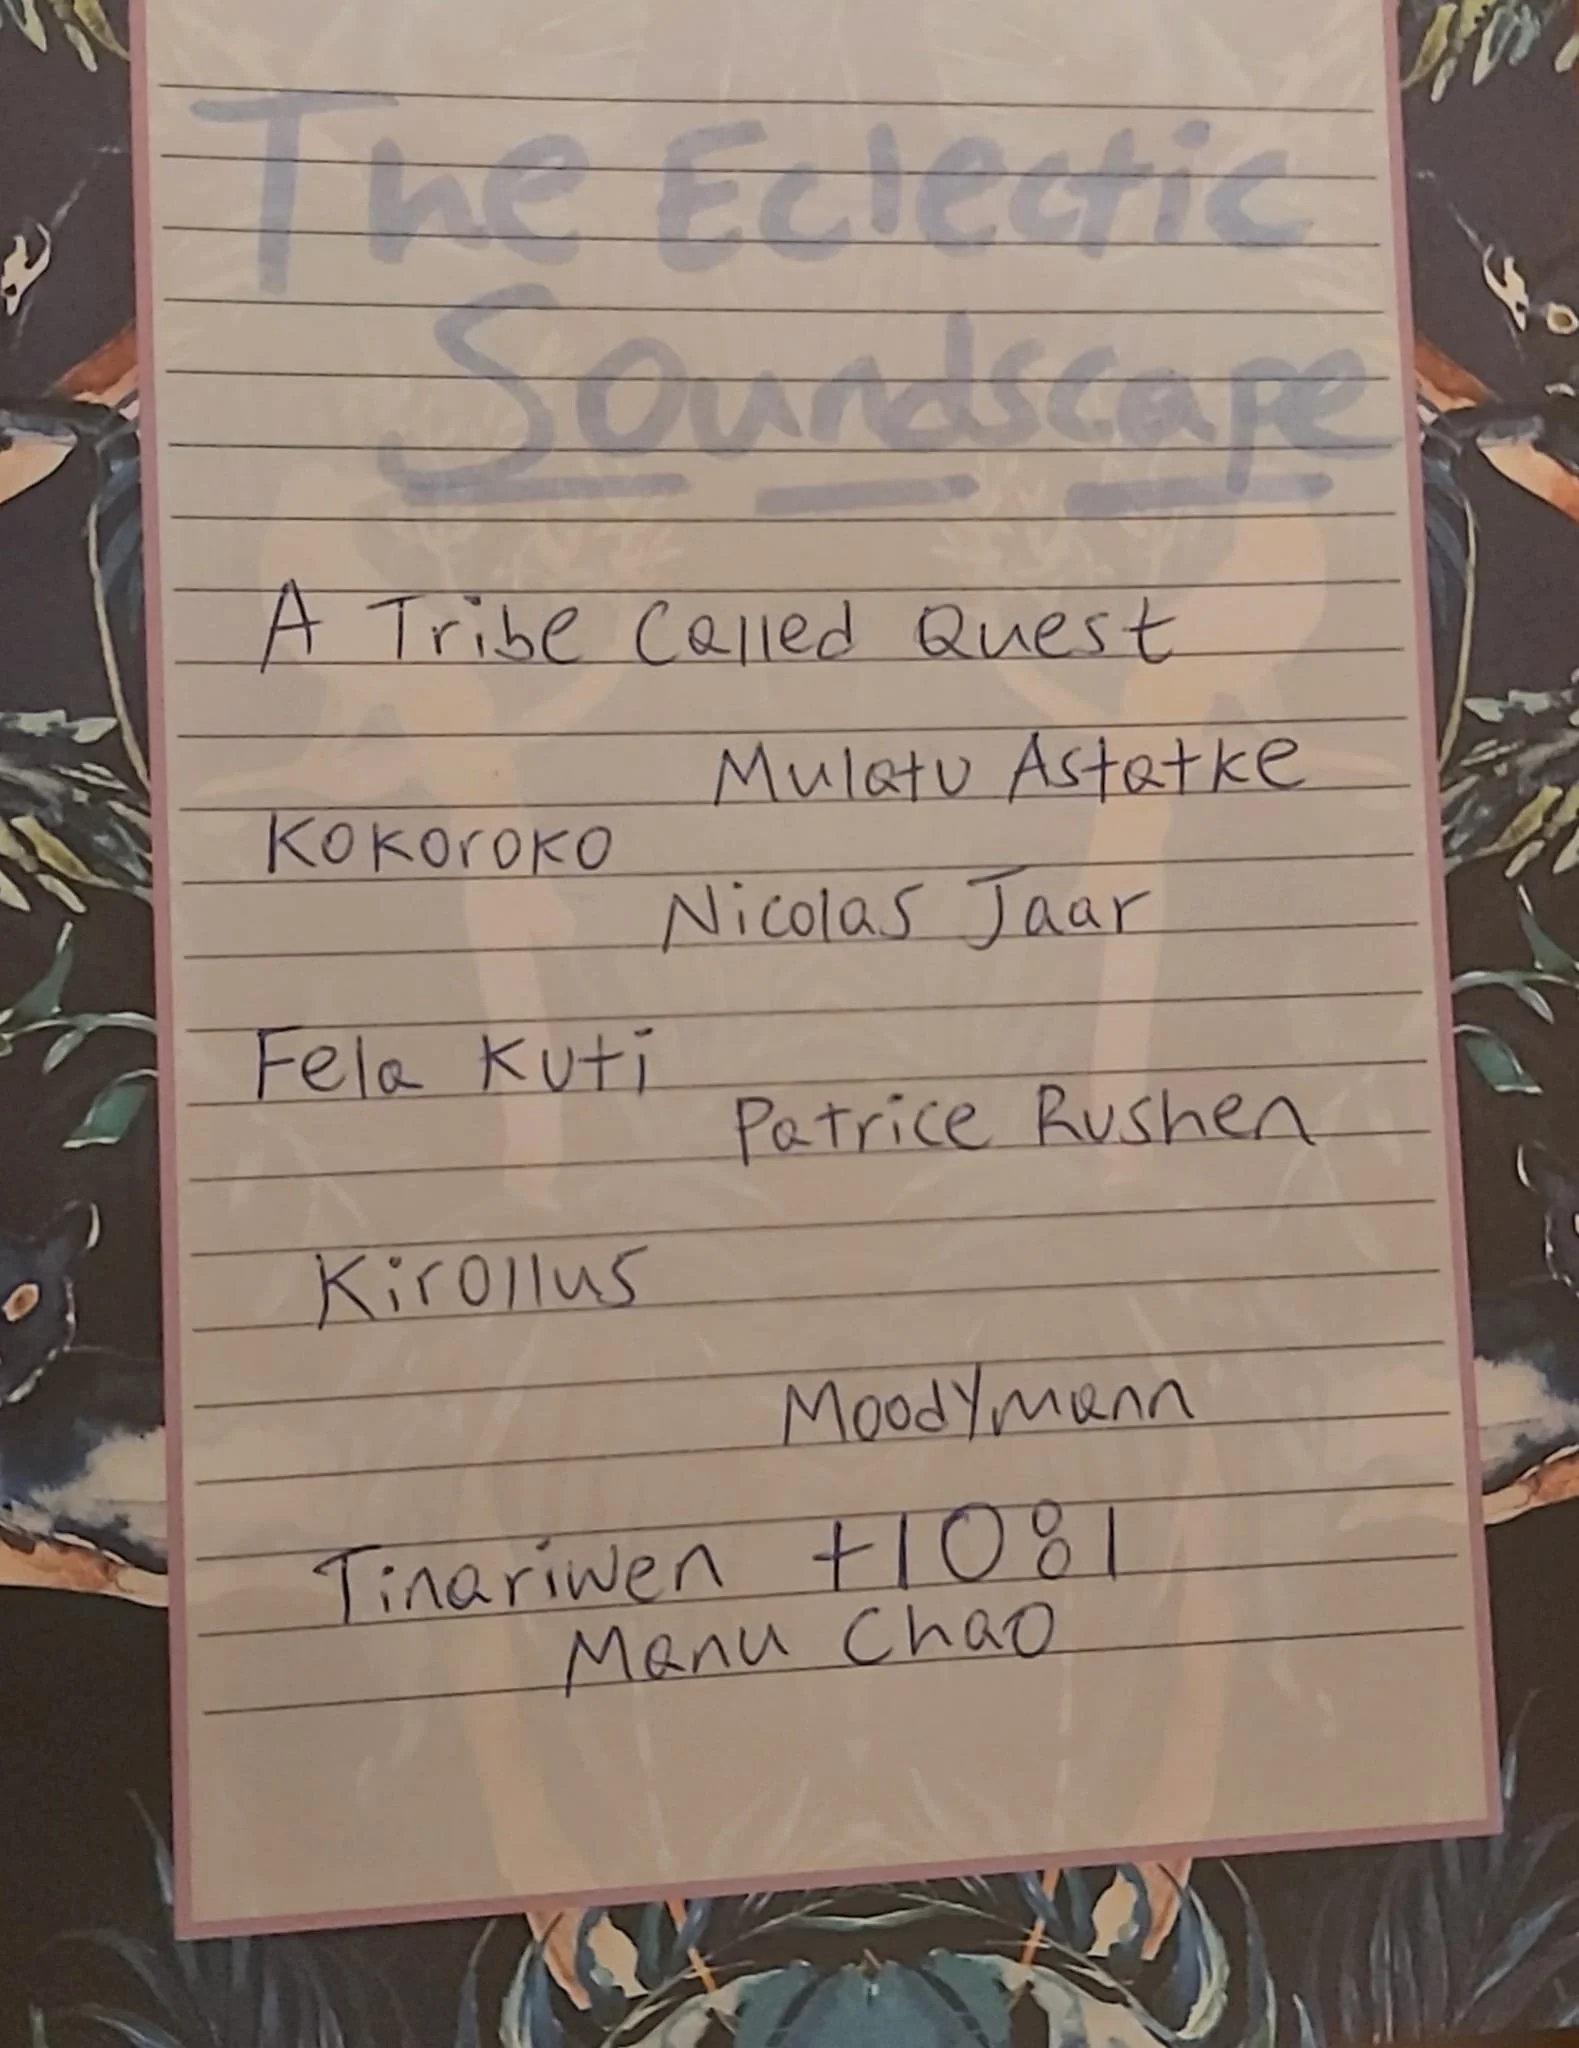 The Eclectic
Soundscape
A Tribe Called Quest
Mulatu Astatke
Kokoroko
Nicolas Jaar
Fela Kuti
Patrice Rushen
Kirollus
Moodymann
Tinariwen +1081
Manu Chao